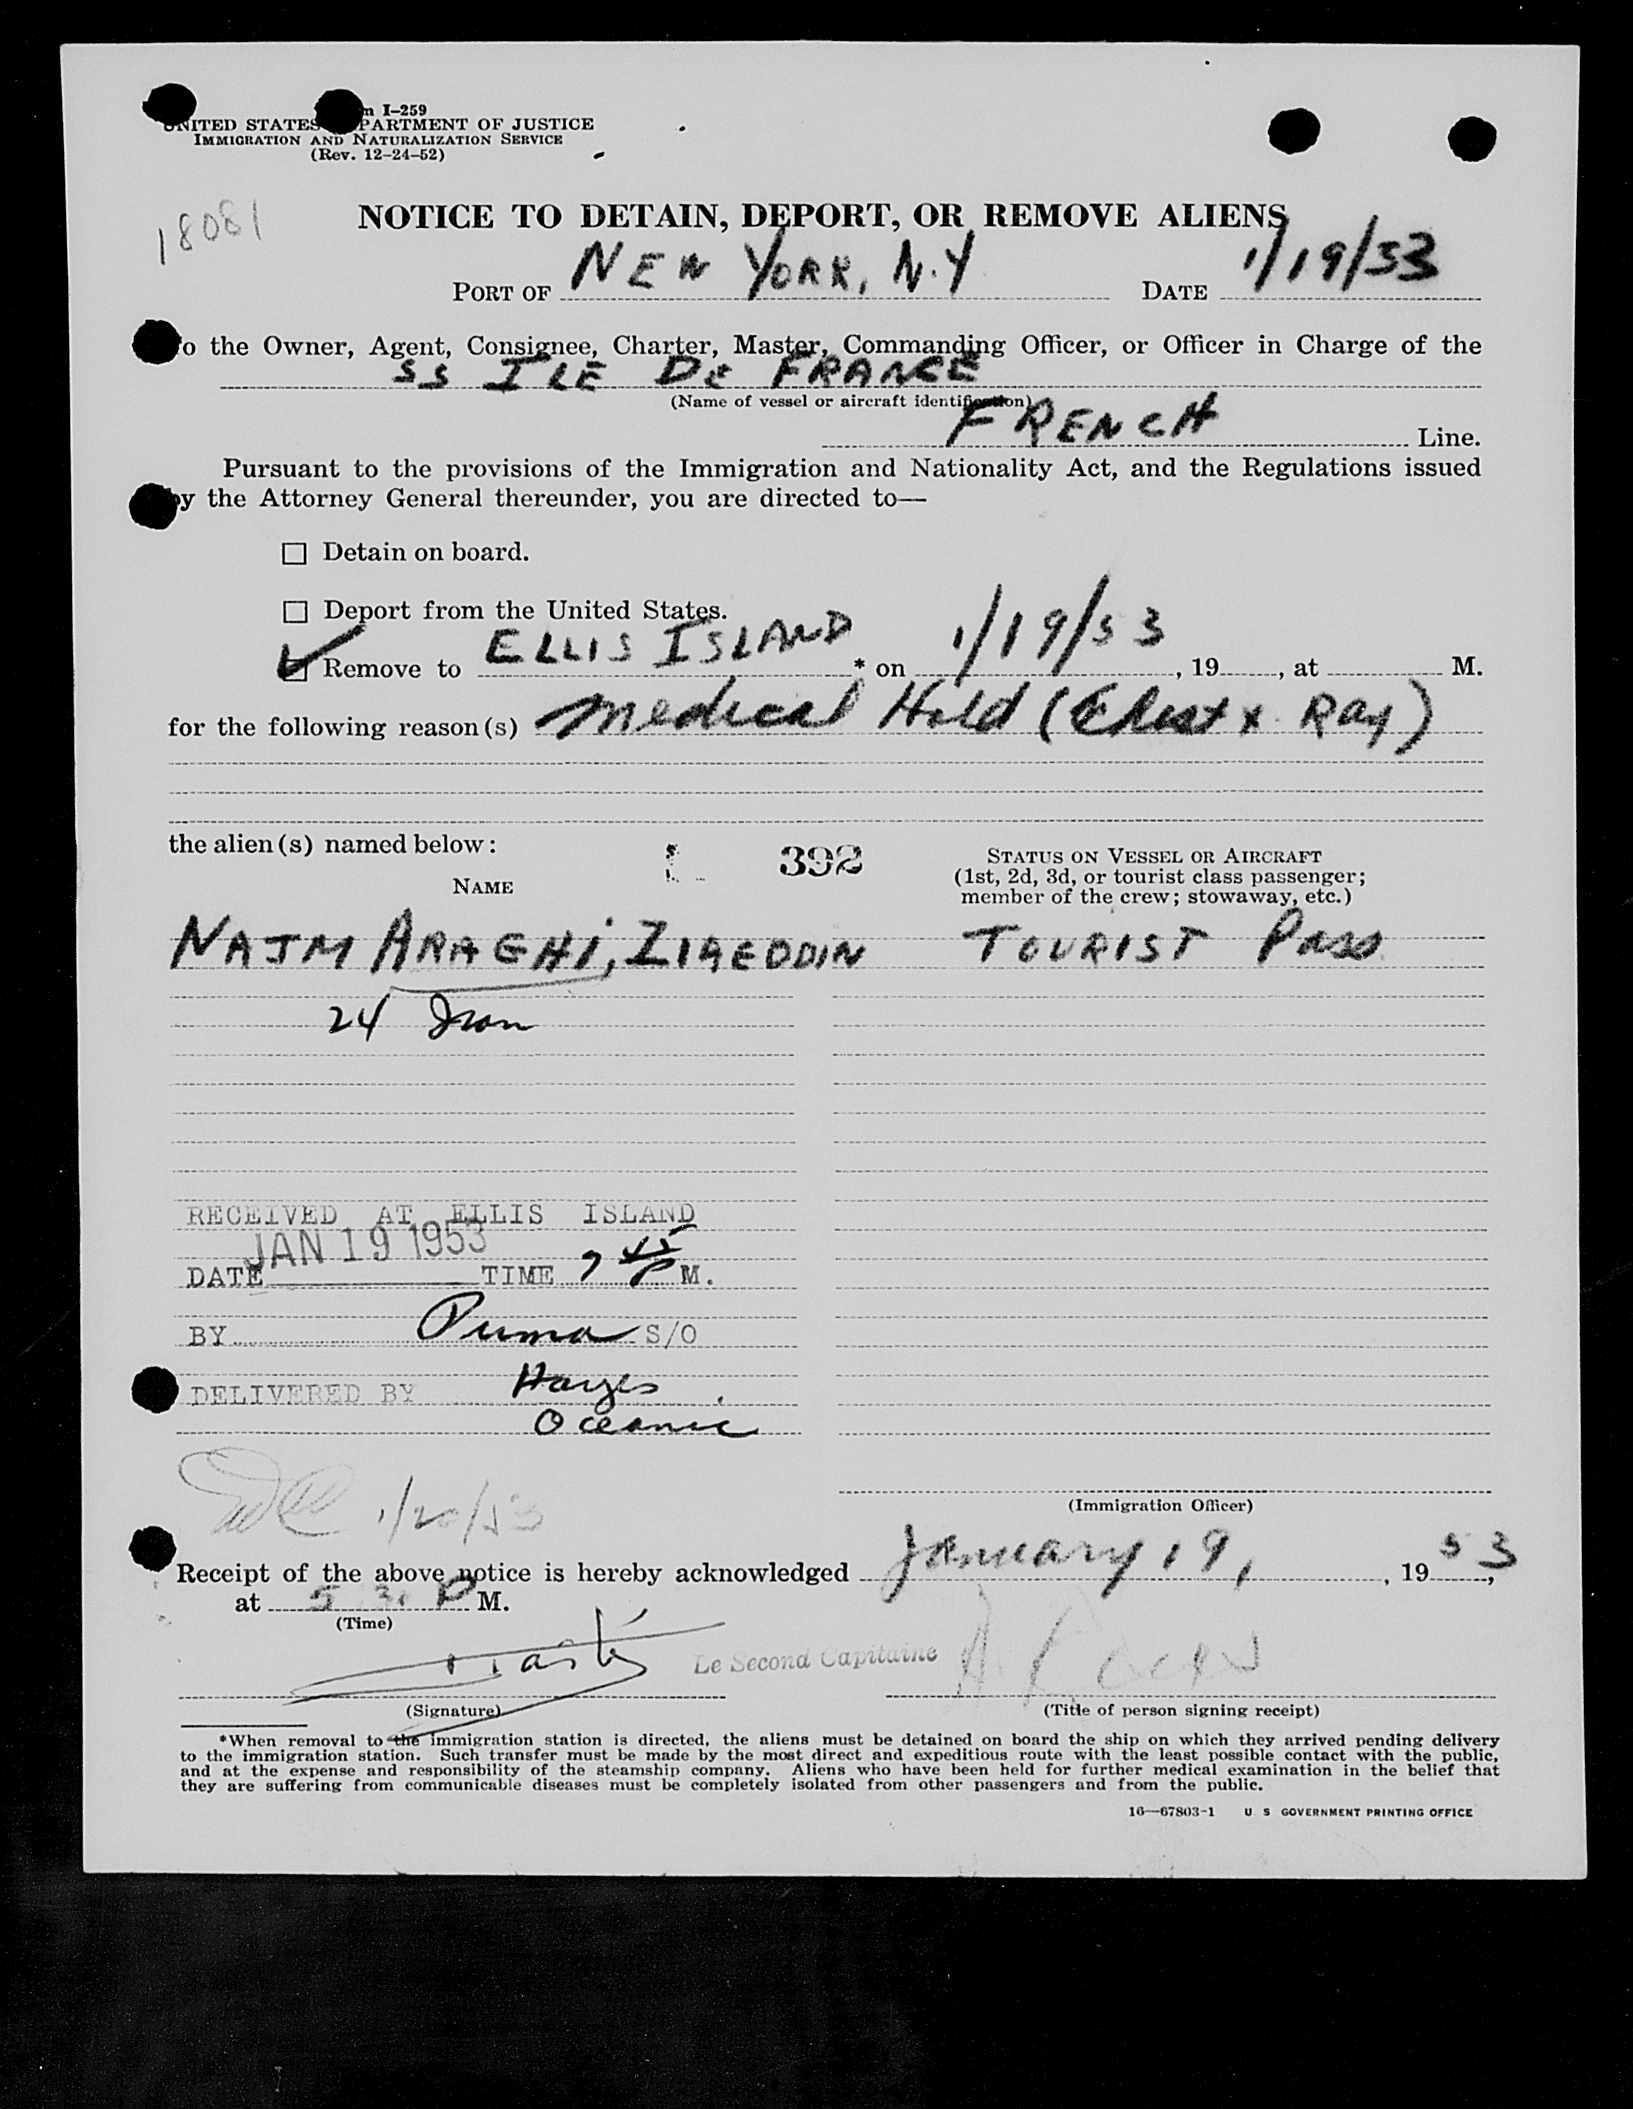 I-259
UNITED STATES DEPARTMENT OF JUSTICE
IMMIGRATION AND NATURALIZATION SERVICE
(Rev. 12-24-52)
18081
NOTICE TO DETAIN, DEPORT, OR REMOVE ALIENS
PORT OF NEW YORK, N.Y DATE 1/19/53
To the Owner, Agent, Consignee, Charter, Master, Commanding Officer, or Officer in Charge of the
SS ILE De FRANCE
(Name of vessel or aircraft identification)
FRENCH Line.
Pursuant to the provisions of the Immigration and Nationality Act, and the Regulations issued
by the Attorney General thereunder, you are directed to—
☐ Detain on board.
☐ Deport from the United States.
☑ Remove to ELLIS ISLAND * on 1/19/53, 19, at M.
for the following reason(s) Medical Hold (Chest X Ray)
the alien(s) named below:
392
NAME
STATUS ON VESSEL OR AIRCRAFT
(1st, 2d, 3d, or tourist class passenger;
member of the crew; stowaway, etc.)
NAJM ARAGHI, ZIAEDDIN TOURIST Pass
24 Iran
RECEIVED AT ELLIS ISLAND
JAN 19 1953
DATE TIME 7 45 P M.
BY Puma S/O
DELIVERED BY Hayes
Oceanic
1/20/53
(Immigration Officer)
Receipt of the above notice is hereby acknowledged January 19, , 19 53,
at 5 30 P M.
(Time)
Le Second Capitaine
(Signature) (Title of person signing receipt)
*When removal to the immigration station is directed, the aliens must be detained on board the ship on which they arrived pending delivery
to the immigration station. Such transfer must be made by the most direct and expeditious route with the least possible contact with the public,
and at the expense and responsibility of the steamship company. Aliens who have been held for further medical examination in the belief that
they are suffering from communicable diseases must be completely isolated from other passengers and from the public.
16—67803-1 U S GOVERNMENT PRINTING OFFICE